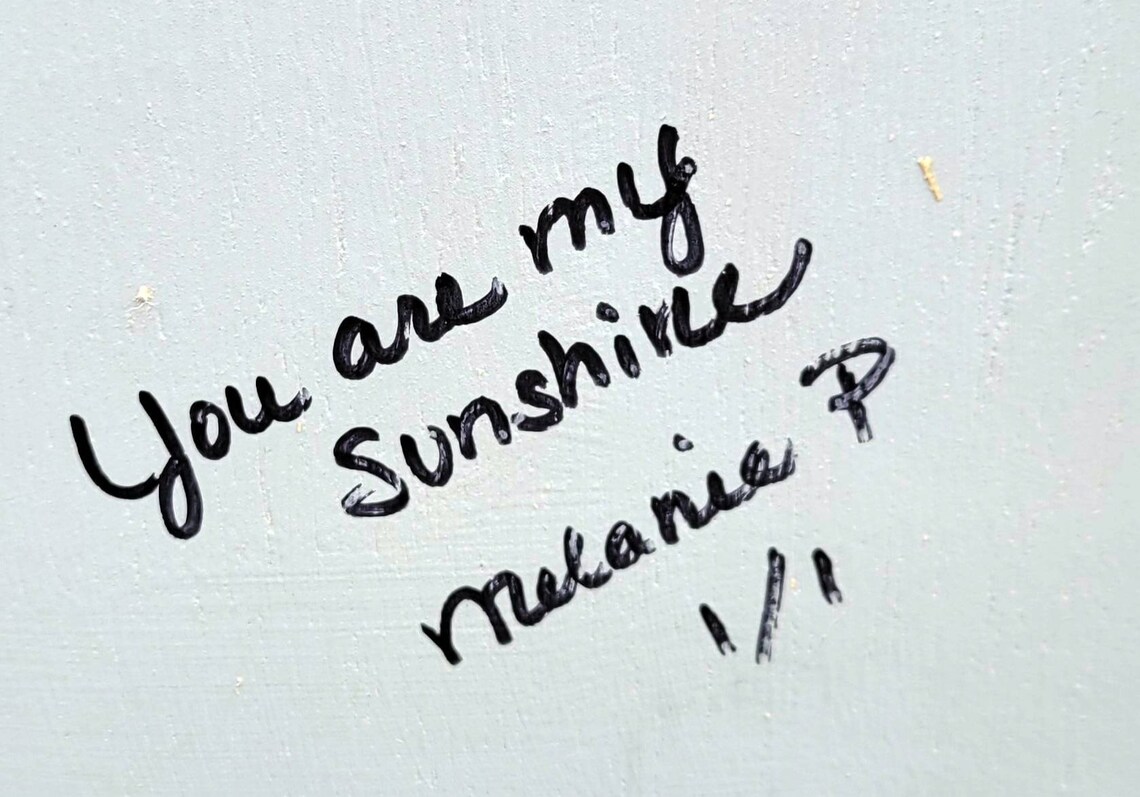 You are my
Sunshine
Melanie P
1/1